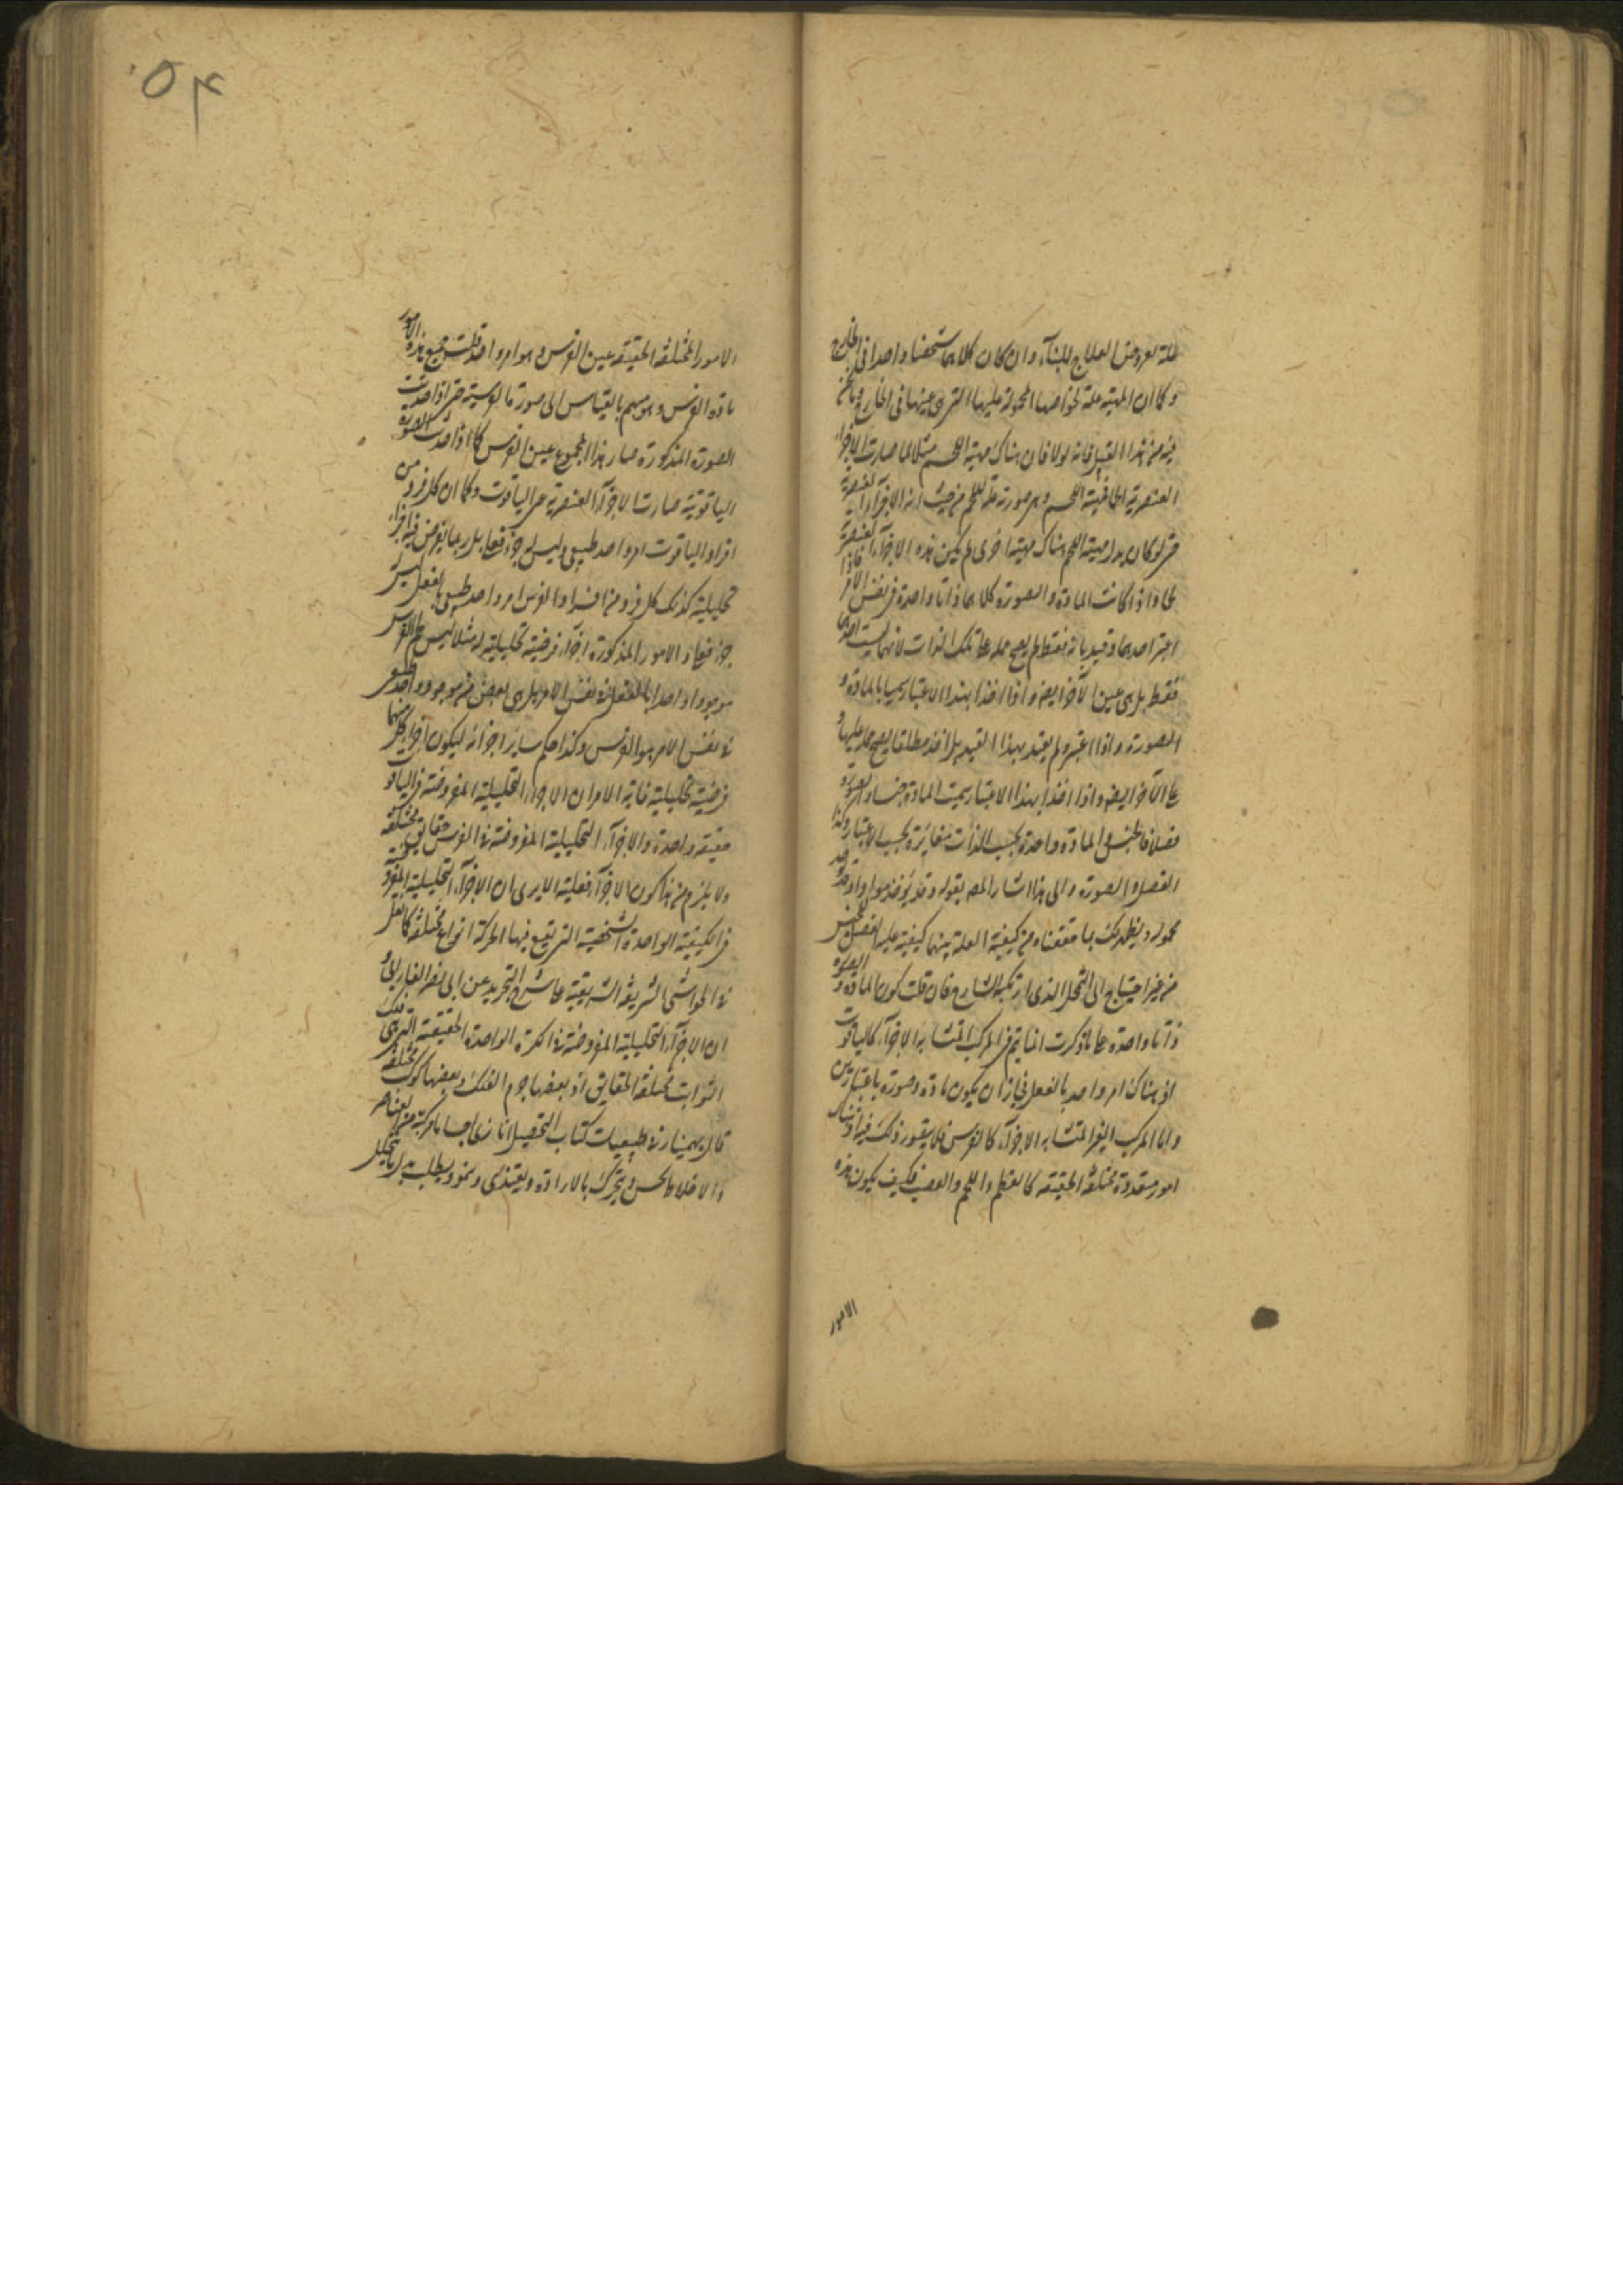 علة لعروض العلاج للبناء وان كان كلاهما شخصا واحدا فى الخارج
وكما ان المهية علة لخواصها المحمولة عليها التى هى عينها فى الخارج وما نحن
فيه من هذا القبيل فانه لولا فان هناك مهية اللحم مثلا لما صارت الاجزاء
العنصرية اللحم وهى صورته علة للحم من حيث انه الاجزاء العنصرية
حتى لو كان بدل مهية اللحم هناك مهية اخرى لم يكن هذه الاجزاء العنصرية
لحما واذا كانت المادة والصورة كلاهما ذاتا واحدة فى نفس الامر فاذا
اعتبر احدهما وقيد بانه فقط لم يصح حمله على تلك الذات لانها ليست احدهما
فقط بل هى عين الآخر ايضا واذا اخذا بهذا الاعتبار سميا بالمادة و
الصورة واذا اعتبر ولم يقيد بهذا القيد بل اخذ مطلقا يصح حمله عليها و
على الآخر ايضا واذا اخذا بهذا الاعتبار سميت المادة جنسا والصورة
فصلا فالجنس والمادة واحدة بحسب الذات متغايرة بحسب الاعتبار وكذا
الفصل والصورة والى هذا اشار المص بقوله وقد يؤخذ مواد وقد
محمولة ويظهر لك بما حققناه من كيفية العلة بينهما كيفية علية الفصل للجنس
من غير احتياج الى التمحل الذى ارتكبه الشارح فان قلت كون المادة والصورة
ذاتا واحدة على ما ذكرت انما يتم فى المركب المتشابه الاجزاء كالياقوت
اذ هناك امر واحد بالفعل فجاز ان يكون مادة وصورة باعتبارين
واما المركب الغير المتشابه الاجزاء كالفرس فلا يتصور ذلك فيه اذ هناك
امور متعددة مختلفة الحقيقة كالعظم واللحم والعصب فكيف يكون هذه
الامور
٥٤
الامور المختلفة الحقيقة عين الفرس وهو امر واحد قلت جميع هذه الامور
مادة الفرس وهو مبهم بالقياس الى صورتها الفرسية حتى اذا حدثت
الصورة المذكورة صار هذا المجموع عين الفرس كما اذا حدثت الصورة
الياقوتية صارت الاجزاء العنصرية عين الياقوت وكما ان كل فرد من
افراد الياقوت امر واحد طبيعى وليس له جزء فعلى بل ربما يفرض فيه اجزاء
تحليلية كذلك كل فرد من افراد الفرس امر واحد طبيعى بالفعل ليس له
جزء فعلى والامور المذكورة اجزاء فرضية تحليلية له مثلا ليس لحم الفرس
موجودا واحدا بالفعل فى نفس الامر بل هى بعض من موجود واحد طبيعى
فى نفس الامر هو الفرس وكذا حكم ساير اجزائه ليكون اجزاء كل منهما
فرضية تحليلية غاية الامر ان الاجزاء التحليلية المفروضة فى الياقوت
حقيقة واحدة والاجزاء التحليلية المفروضة فى الفرس حقايق مختلفة
ولا يلزم من هذا كون الاجزاء فعلية الا يرى ان الاجزاء التحليلية المفروضة
فى الكيفية الواحدة الشخصية التى تقع فيها الحركة انواع مختلفة كما نقل
فى الحواشى الشريفة الشريفية على شرح التجريد عن ابى نصر الفارابى
ان الاجزاء التحليلية المفروضة فى الكرة الواحدة الحقيقية التى هى فلك
الثوابت مختلفة الحقايق اذ بعضها جرم الفلك وبعضها كوكب مختلفة
قال بهمنيار فى طبيعيات كتاب التحصيل انا نرى اجساما مركبة من العناصر
والاخلاط تحس وتتحرك بالارادة ويغتذى وينمو ويطلب بدل ما يتحلل